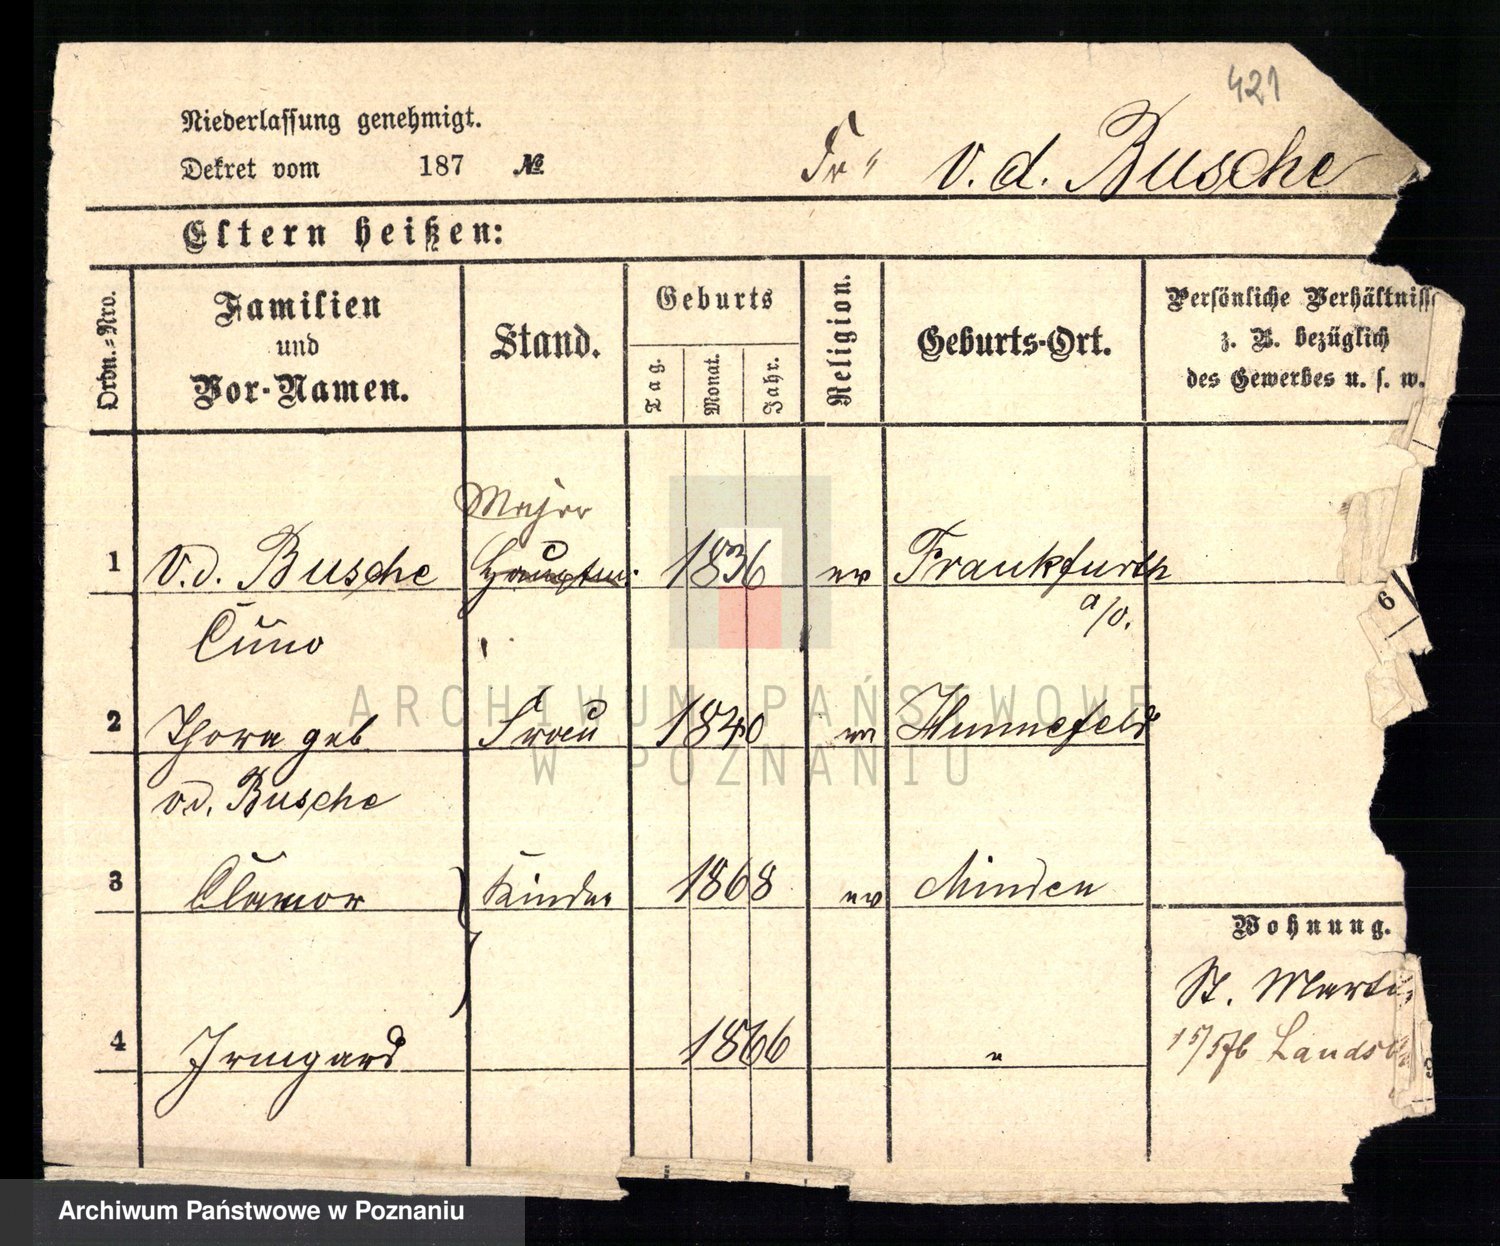 421
Niederlassung genehmigt.
Dekret vom 187 №
Fr" v. d. Busche
Eltern heißen:
Ordn.-Nro.
Familien und Vor-Namen.
Stand.
Geburts
Tag. Monat. Jahr.
Religion.
Geburts-Ort.
Persönliche Verhältniss
z. B. bezüglich
des Gewerbes u. s. w.
Major
1 v. d. Busche Hauptm. 1836 ev Frankfurth
Cuno a/O.
2 Thora geb Frau 1840 ev Hunnefeld
v.d. Busche
3 Clamor Kinder 1868 ev Minden
4 Irmgard 1866 "
Wohnung.
St. Marti
15/5 76 Lands
6
ARCHIWUM PAŃSTWOWE
W POZNANIU
Archiwum Państwowe w Poznaniu